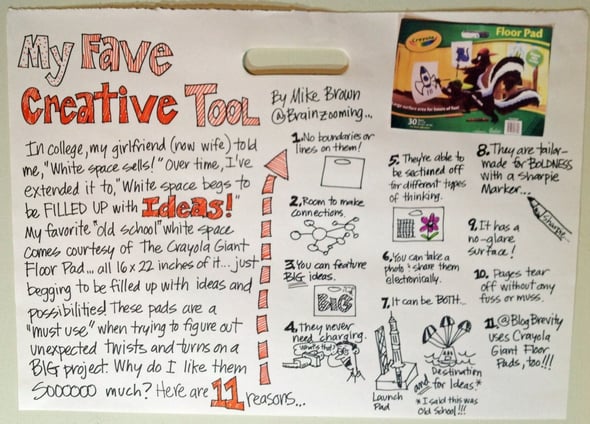 My Fave
Creative Tool
By Mike Brown
@Brainzooming...
In college, my girlfriend (now wife) told
me, "White space sells!" Over time, I've
extended it to, "White space begs to
be FILLED UP with Ideas!"
My favorite "old school" white space
comes courtesy of The Crayola Giant
Floor Pad... all 16 x 22 inches of it... just
begging to be filled up with ideas and
possibilities! These pads are a
"must use" when trying to figure out
unexpected twists and turns on a
BIG project. Why do I like them
SOOOOOO much? Here are 11 reasons...
1. No boundaries or
lines on them!
2. Room to make
connections.
3. You can feature
BIG ideas.
BIG
4. They never
need charging.
What's that?
5. They're able to
be sectioned off
for different types
of thinking.
6. You can take a
photo & share them
electronically.
7. It can be BOTH...
Launch
Pad
and
Destination
for Ideas.*
* I said this was
Old School!!!
Crayola
Floor Pad
Large surface area for future of fun!
30
8. They are tailor-
made for BOLDNESS
with a Sharpie
Marker...
Sharpie
9. It has a
no-glare
surface!
10. Pages tear
off without any
fuss or muss.
11. @BlogBrevity
uses Crayola
Giant Floor
Pads, too!!!